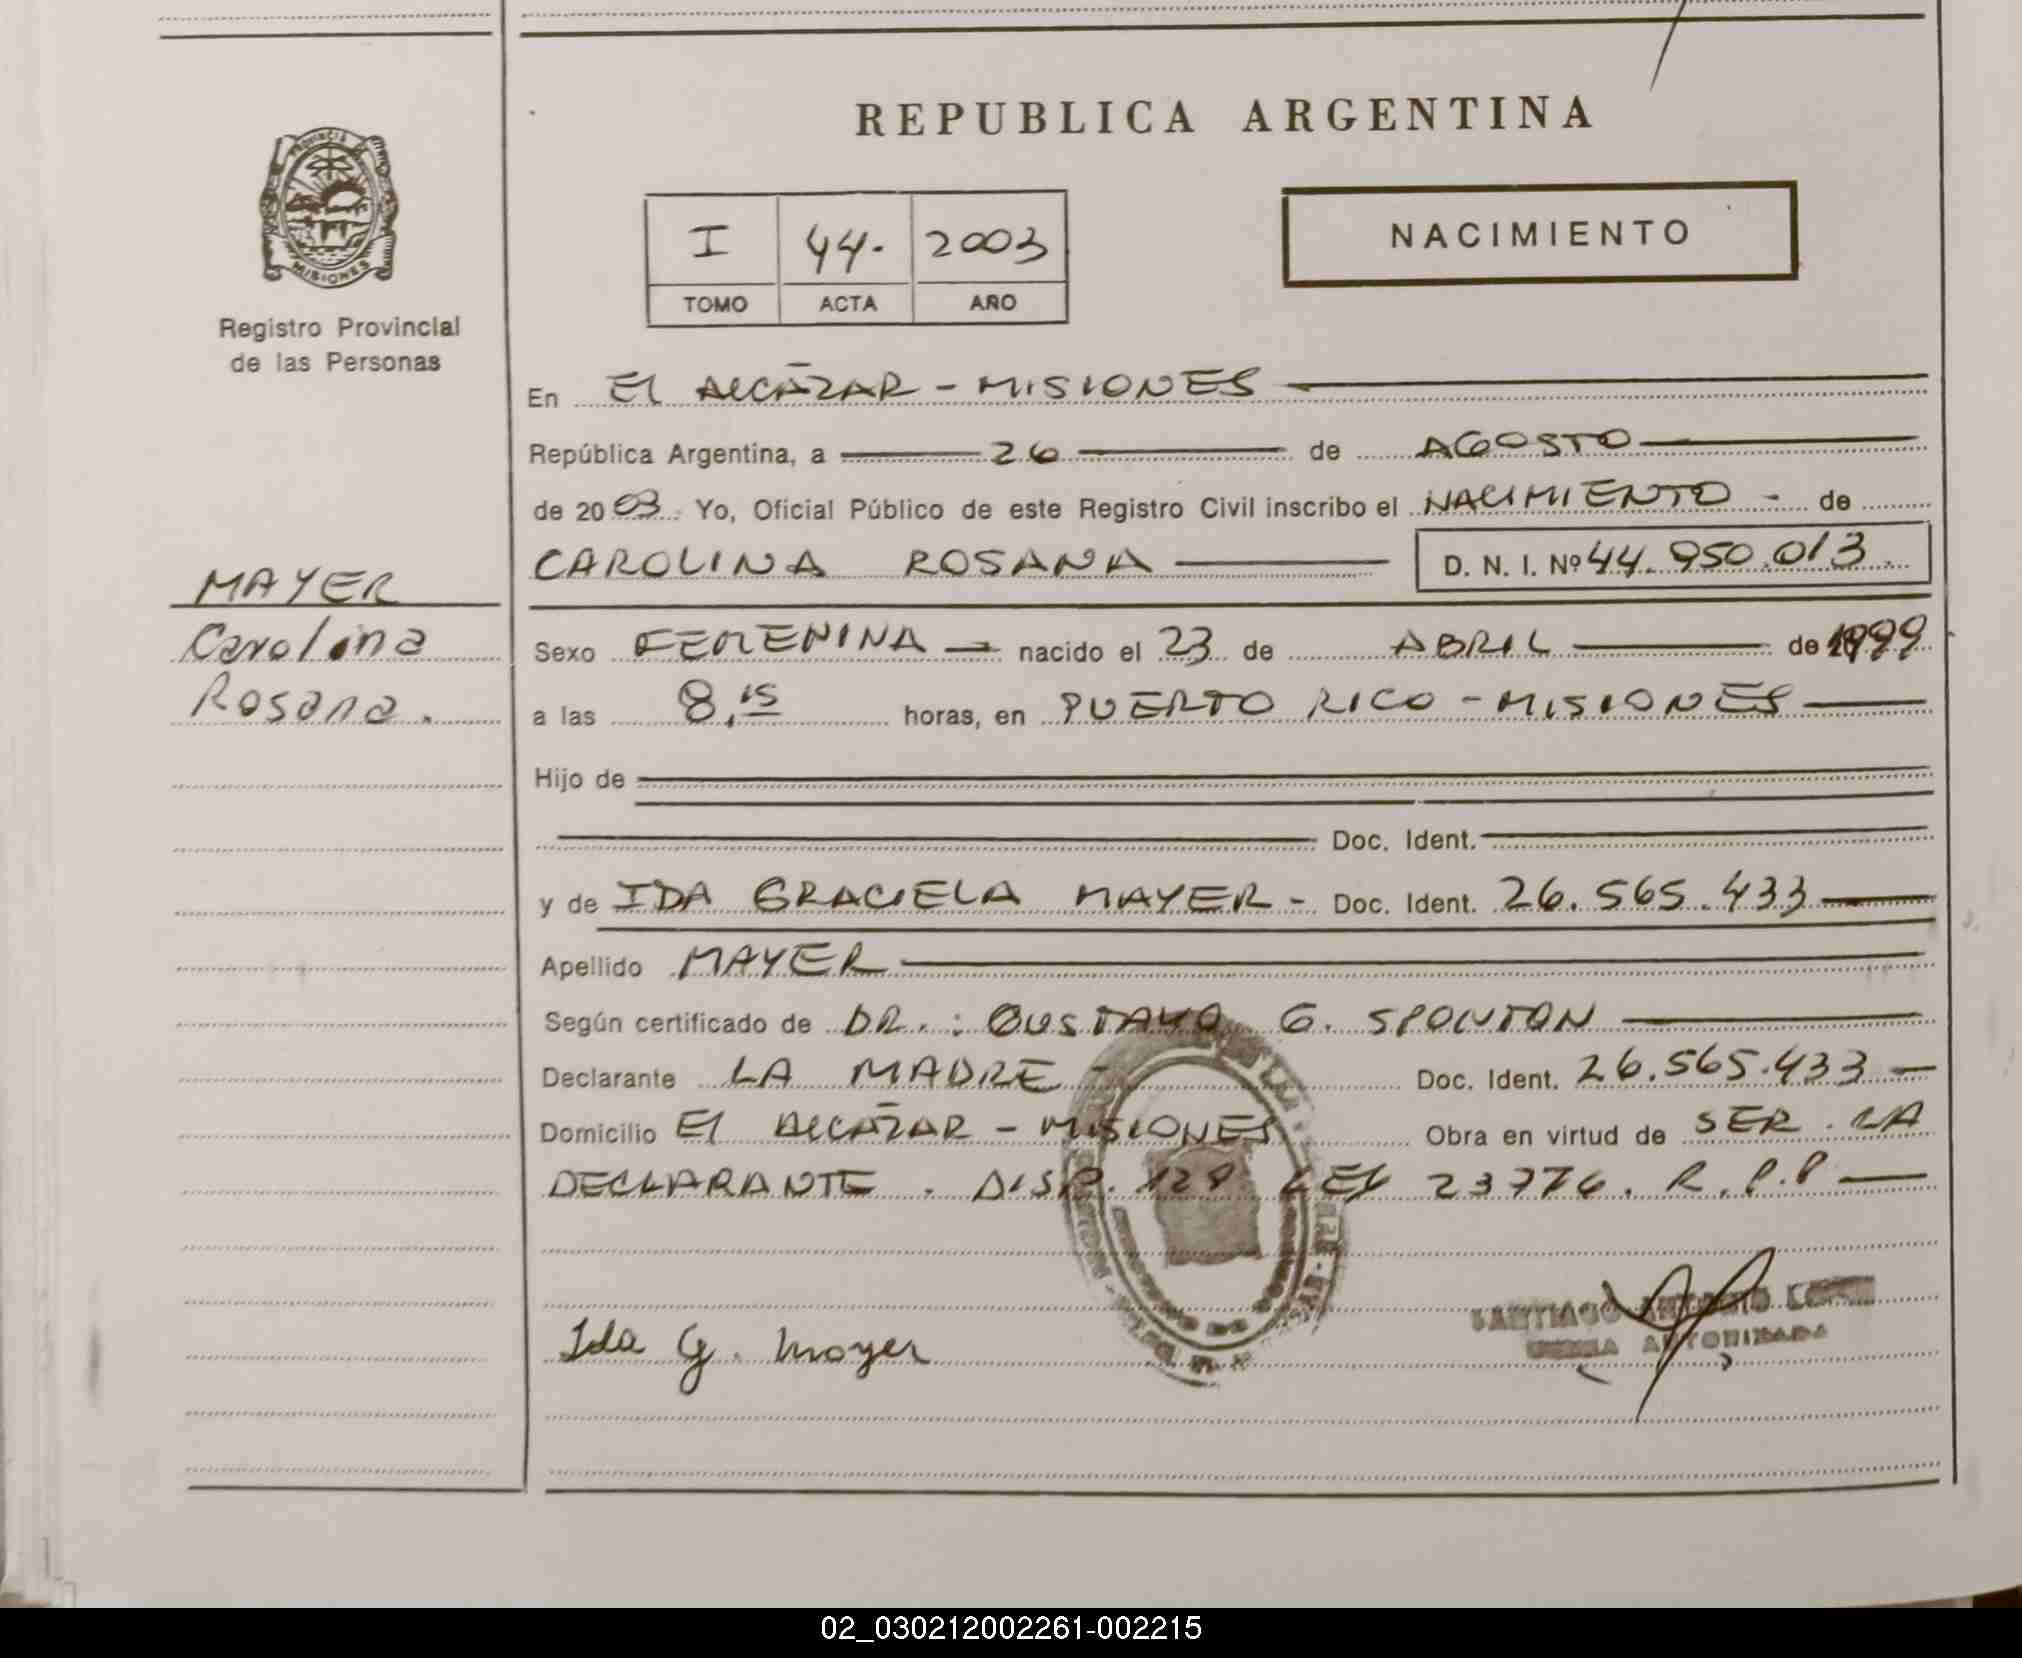 REPUBLICA ARGENTINA
PROVINCIA
MISIONES
I 44. 2003
TOMO ACTA AÑO
NACIMIENTO
Registro Provincial
de las Personas
En El Alcázar - MISIONES
República Argentina, a 26 de AGOSTO
de 2003. Yo, Oficial Público de este Registro Civil inscribo el NACIMIENTO - de
CAROLINA ROSANA D. N. I. Nº 44.950.013.
MAYER
Carolina
Rosana.
Sexo FEMENINA nacido el 23 de ABRIL de 1999
a las 8,15 horas, en PUERTO RICO - MISIONES
Hijo de
Doc. Ident.
y de IDA GRACIELA MAYER - Doc. Ident. 26.565.433
Apellido MAYER
Según certificado de DR.: GUSTAVO G. SPONTON
Declarante LA MADRE - Doc. Ident. 26.565.433
Domicilio El Alcázar - MISIONES Obra en virtud de SER LA
DECLARANTE. DISP. 128 LEY 23776. R.P.P
SANTIAGO ANTONIO
FIRMA AUTORIZADA
Ida G. Mayer
02_030212002261-002215